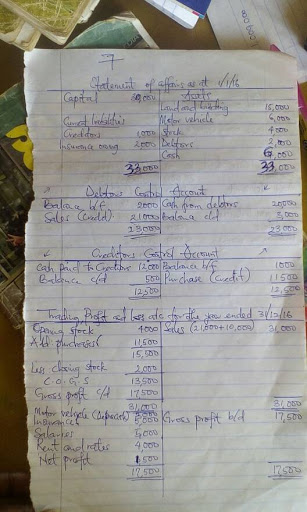 7
Statement of affairs as at 1/1/16
Capital 30,000 Assets
Land and building 15,000
Current liabilities Motor vehicle 6,000
Creditors 1000 Stock 4,000
Insurance owing 2000 Debtors 2,000
Cash 6,000
33,000 33,000
Debtors Control Account
Balance b/f 2000 Cash from debtors 20,000
Sales (Credit) 21000 Balance c/d 3,000
23000 23,000
Creditors Control Account
Cash paid to Creditors 12000 Balance b/f 1000
Balance c/d 500 Purchase (Credit) 11500
12,500 12,500
Trading, Profit and Loss a/c for the year ended 31/12/16
Opening stock 4000 Sales (21,000+10,000) 31,000
Add purchases 11,500
15,500
Less closing stock 2,000
C.O.G.S 13,500
Gross profit c/d 17,500
31,000 31,000
Motor vehicle (Depreciation) Gross profit b/d 17,500
Insurance 5,000
Salaries 5,000
Rent and rates 4,000
Net profit 1,500
17,500 17,500